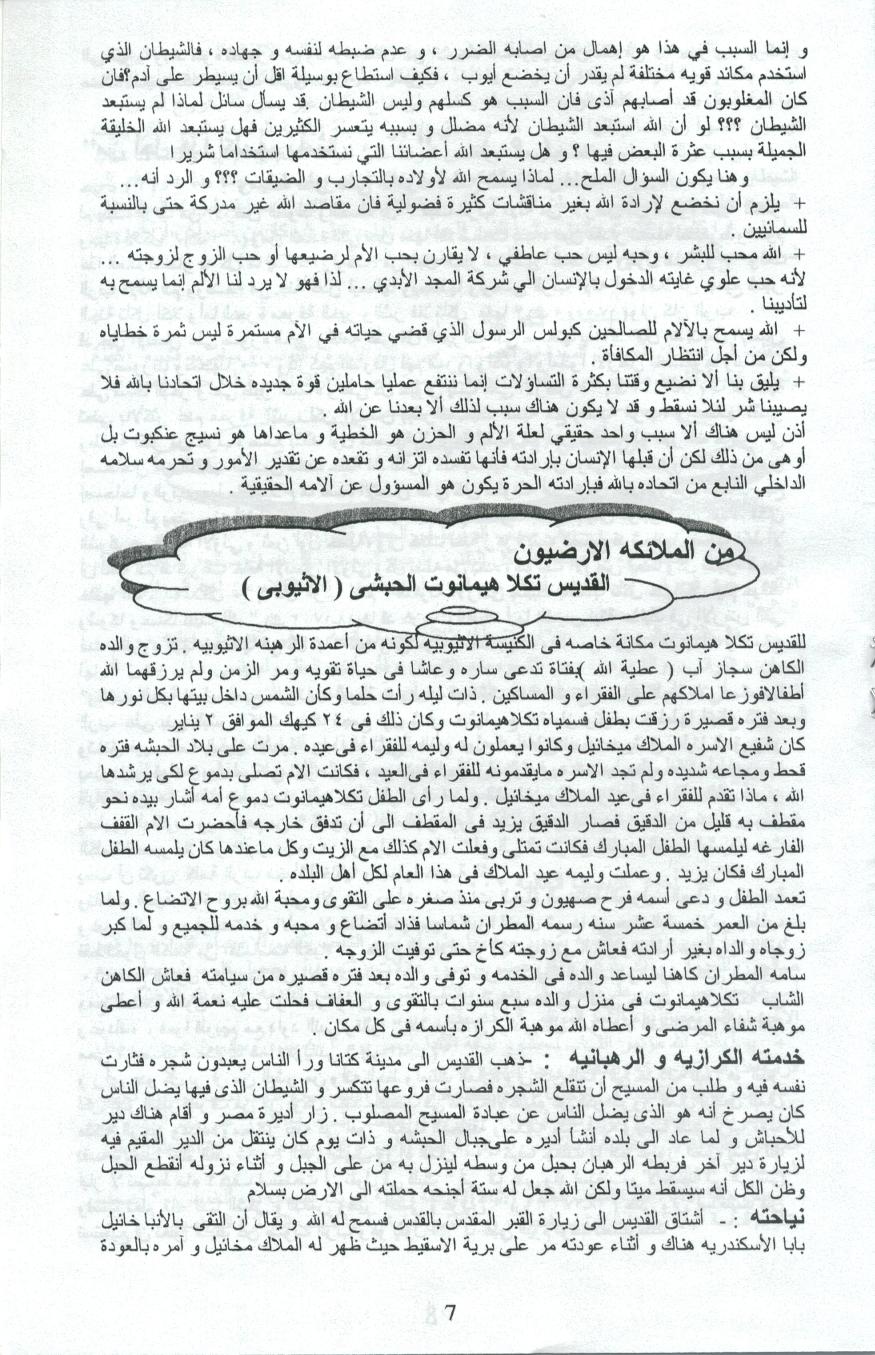 و إنما السبب في هذا هو إهمال من اصابه الضرر ، و عدم ضبطه لنفسه و جهاده ، فالشيطان الذي
استخدم مكائد قويه مختلفة لم يقدر أن يخضع أيوب ، فكيف استطاع بوسيلة اقل أن يسيطر على آدم؟فان
كان المغلوبون قد أصابهم آذى فان السبب هو كسلهم وليس الشيطان .قد يسأل سائل لماذا لم يستبعد
الشيطان ؟؟؟ لو أن الله استبعد الشيطان لأنه مضلل و بسببه يتعسر الكثيرين فهل يستبعد الله الخليقة
الجميلة بسبب عثرة البعض فيها ؟ و هل يستبعد الله أعضائنا التي نستخدمها استخداما شريرا
و هنا يكون السؤال الملح... لماذا يسمح الله لأولاده بالتجارب و الضيقات ؟؟؟ و الرد أنه...
+ يلزم أن نخضع لإرادة الله بغير مناقشات كثيرة فضولية فان مقاصد الله غير مدركة حتى بالنسبة
للسمائيين .
+ الله محب للبشر ، وحبه ليس حب عاطفي ، لا يقارن بحب الأم لرضيعها أو حب الزوج لزوجته ...
لأنه حب علوي غايته الدخول بالإنسان الي شركة المجد الأبدي ... لذا فهو لا يرد لنا الألم إنما يسمح به
لتأديبنا .
+ الله يسمح بالآلام للصالحين كبولس الرسول الذي قضي حياته في الأم مستمرة ليس ثمرة خطاياه
ولكن من أجل انتظار المكافأة .
+ يليق بنا ألا نضيع وقتنا بكثرة التساؤلات إنما ننتفع عمليا حاملين قوة جديده خلال اتحادنا بالله فلا
يصيبنا شر لئلا نسقط و قد لا يكون هناك سبب لذلك ألا بعدنا عن الله .
أذن ليس هناك ألا سبب واحد حقيقي لعلة الألم و الحزن هو الخطية و ماعداها هو نسيج عنكبوت بل
أوهى من ذلك لكن أن قبلها الإنسان بإرادته فأنها تفسده اتزانه و تقعده عن تقدير الأمور و تحرمه سلامه
الداخلي النابع من اتحاده بالله فبإرادته الحرة يكون هو المسؤول عن آلامه الحقيقية .
من الملائكه الارضيون
القديس تكلا هيمانوت الحبشى ( الاثيوبى )
للقديس تكلا هيمانوت مكانة خاصه فى الكنيسة الاثيوبيه لكونه من أعمدة الرهبنه الاثيوبيه . تزوج والده
الكاهن سجاز آب ( عطية الله )بفتاة تدعى ساره وعاشا فى حياة تقويه ومر الزمن ولم يرزقهما الله
أطفالافوزعا املاكهم على الفقراء و المساكين . ذات ليله رأت حلما وكأن الشمس داخل بيتها بكل نورها
وبعد فتره قصيرة رزقت بطفل فسمياه تكلاهيمانوت وكان ذلك فى ٢٤ كيهك الموافق ٢ يناير
كان شفيع الاسره الملاك ميخائيل وكانوا يعملون له وليمه للفقراء فى عيده . مرت على بلاد الحبشه فتره
قحط ومجاعه شديده ولم تجد الاسره مايقدمونه للفقراء فى العيد ، فكانت الام تصلى بدموع لكى يرشدها
الله ، ماذا تقدم للفقراء فى عيد الملاك ميخائيل . ولما رأى الطفل تكلاهيمانوت دموع أمه أشار بيده نحو
مقطف به قليل من الدقيق فصار الدقيق يزيد فى المقطف الى أن تدفق خارجه فأحضرت الام القفف
الفارغه ليلمسها الطفل المبارك فكانت تمتلى وفعلت الام كذلك مع الزيت وكل ماعندها كان يلمسه الطفل
المبارك فكان يزيد . وعملت وليمه عيد الملاك فى هذا العام لكل أهل البلده .
تعمد الطفل و دعى أسمه فرح صهيون و تربى منذ صغره على التقوى ومحبة الله بروح الاتضاع . ولما
بلغ من العمر خمسة عشر سنه رسمه المطران شماسا فذاد أتضاع و محبه و خدمه للجميع و لما كبر
زوجاه والداه بغير أرادته فعاش مع زوجته كأخ حتى توفيت الزوجه .
سامه المطران كاهنا ليساعد والده فى الخدمه و توفى والده بعد فتره قصيره من سيامته فعاش الكاهن
الشاب تكلاهيمانوت فى منزل والده سبع سنوات بالتقوى و العفاف فحلت عليه نعمة الله و أعطى
موهبة شفاء المرضى و أعطاه الله موهبة الكرازه بأسمه فى كل مكان .
خدمته الكرازيه و الرهبانيه : -ذهب القديس الى مدينة كتانا ورأ الناس يعبدون شجره فثارت
نفسه فيه و طلب من المسيح أن تنقلع الشجره فصارت فروعها تتكسر و الشيطان الذى فيها يضل الناس
كان يصرخ أنه هو الذى يضل الناس عن عبادة المسيح المصلوب . زار أديرة مصر و أقام هناك دير
للأحباش و لما عاد الى بلده أنشأ أديره على جبال الحبشه و ذات يوم كان ينتقل من الدير المقيم فيه
لزيارة دير آخر فربطه الرهبان بحبل من وسطه لينزل به من على الجبل و أثناء نزوله أنقطع الحبل
وظن الكل أنه سيسقط ميتا ولكن الله جعل له ستة أجنحه حملته الى الارض بسلام
نياحته :- أشتاق القديس الى زيارة القبر المقدس بالقدس فسمح له الله و يقال أن التقى بالأنبا خائيل
بابا الأسكندريه هناك و أثناء عودته مر على برية الاسقيط حيث ظهر له الملاك مخائيل و آمره بالعودة
7